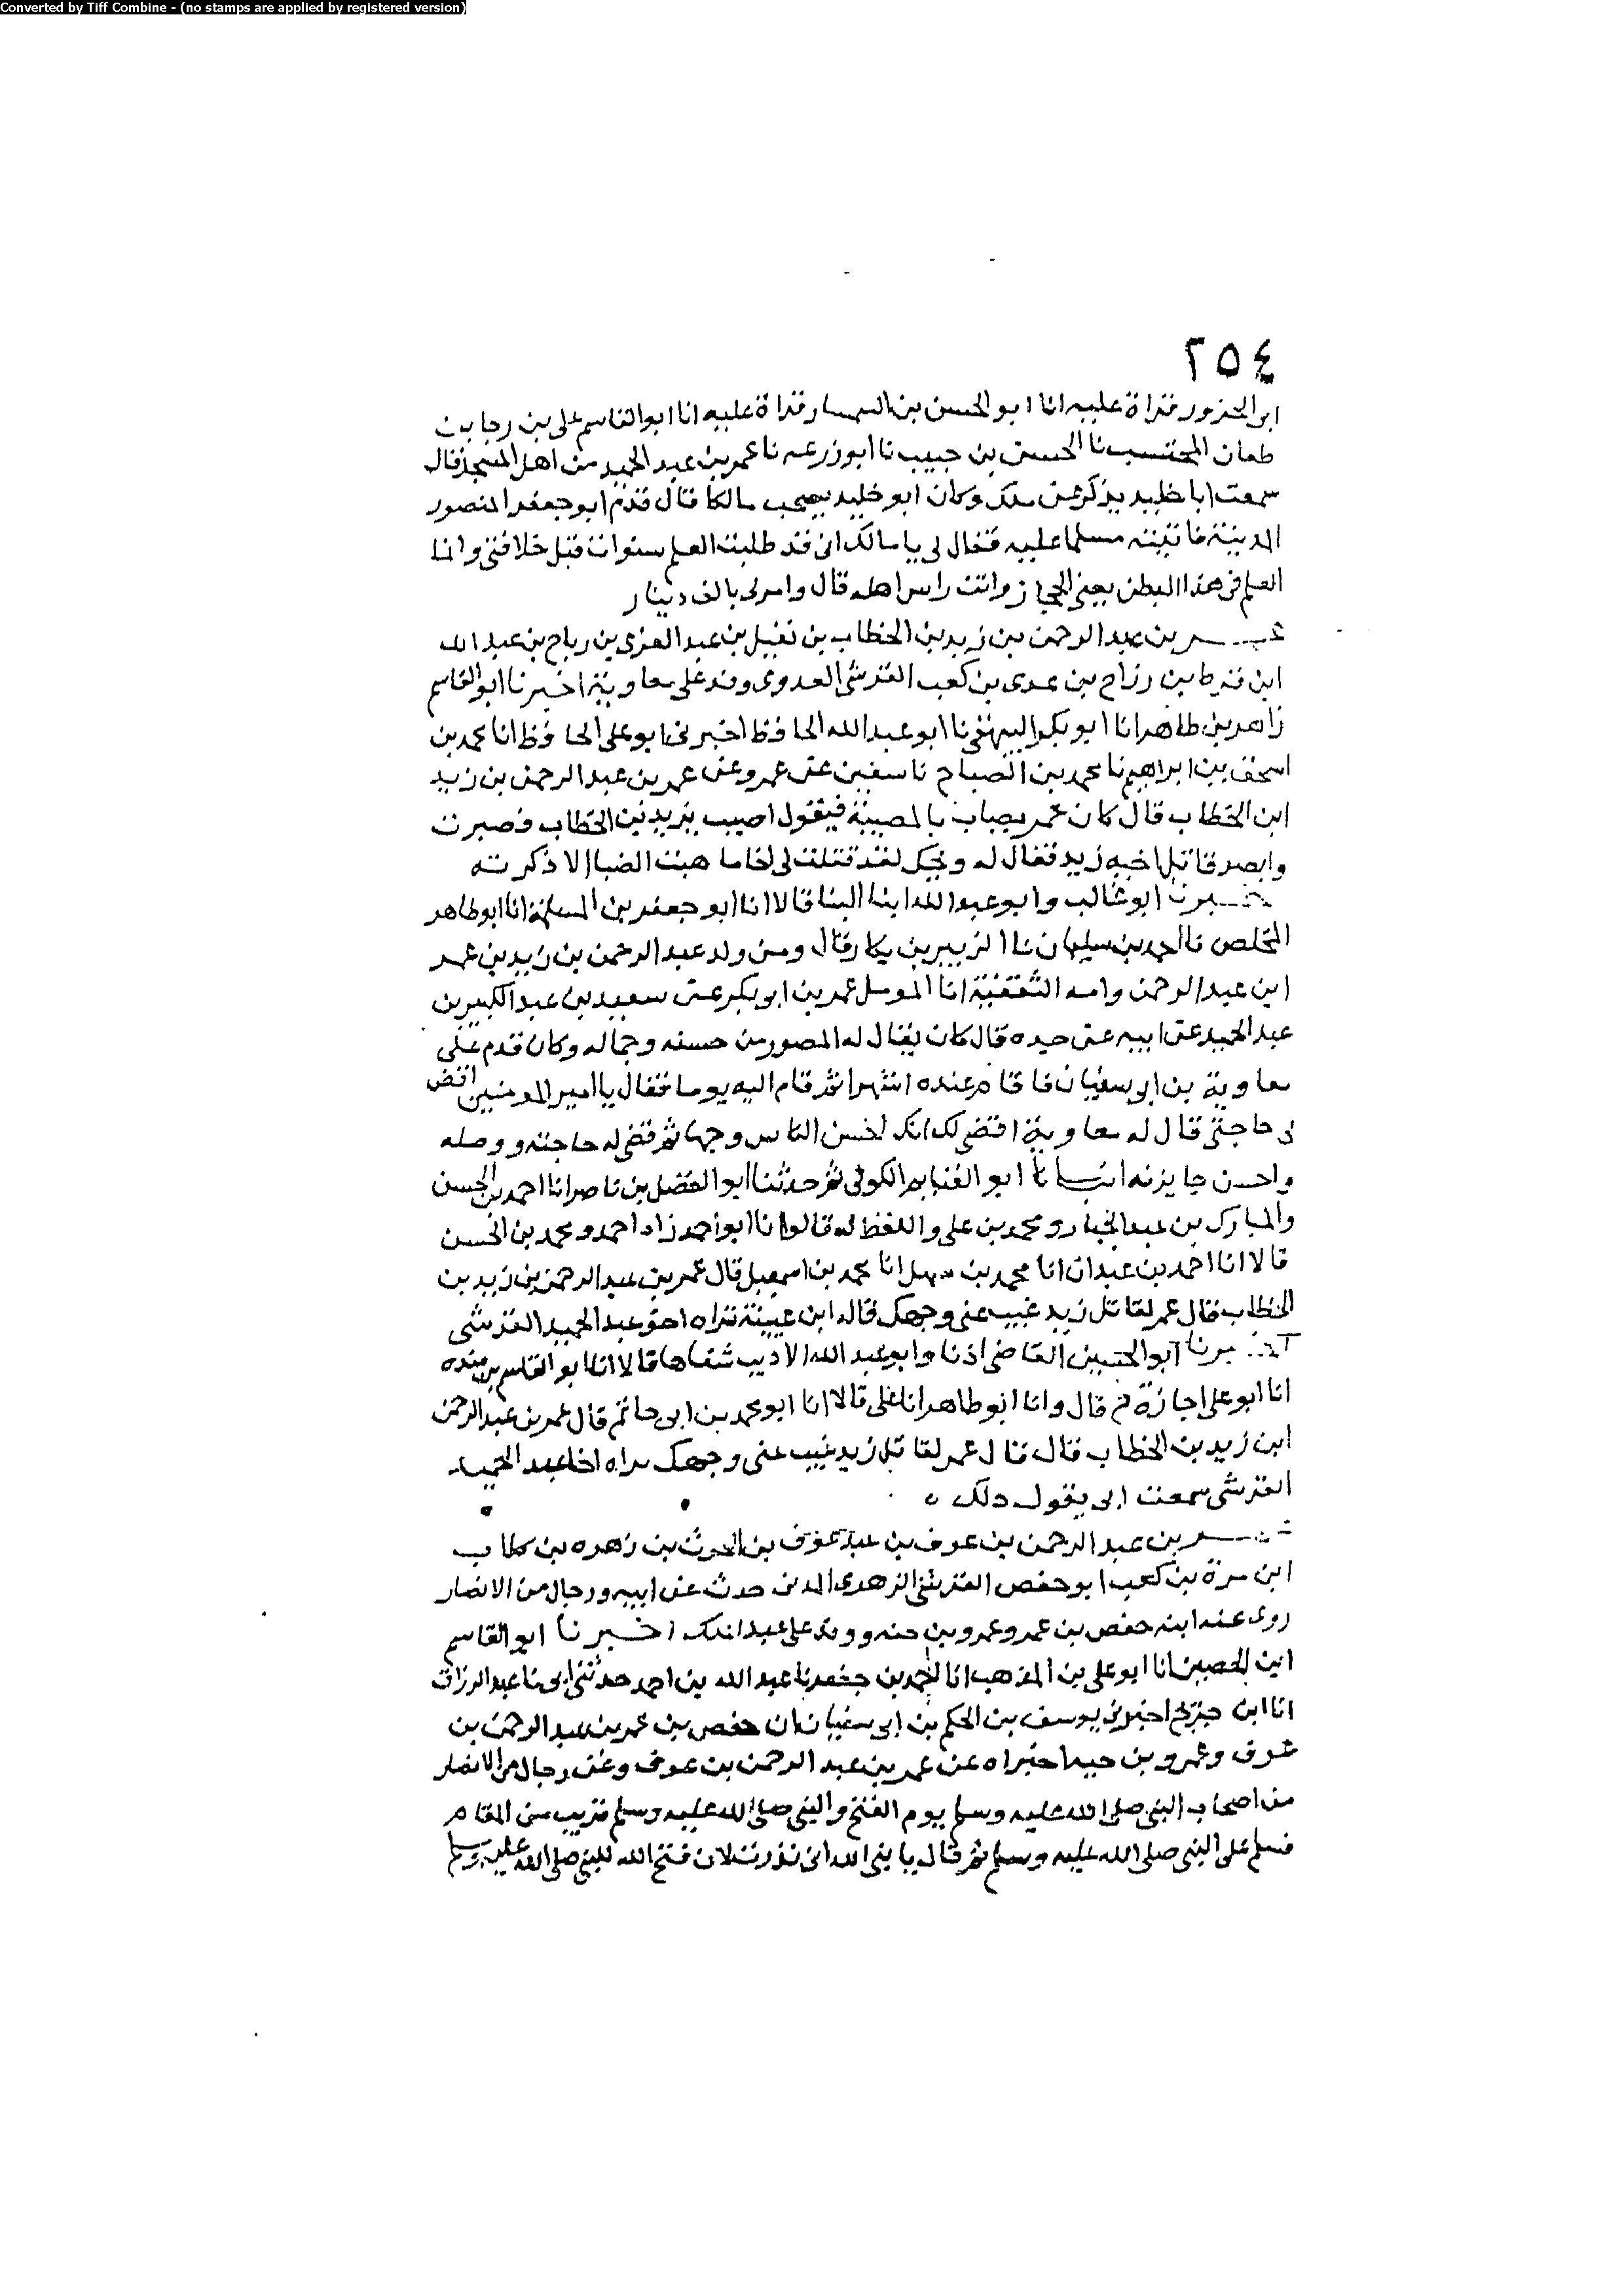 Converted by Tiff Combine - (no stamps are applied by registered version)
٢٥٤
ابو الحزور قراة عليه انا ابو الحسن بن السمسار قراة عليه انا ابو القاسم على بن رجا بن
طعان المحتسب نا الحسن بن حبيب نا ابو زرعه نا عمر بن عبد الحميد من اهل المسجد قال
سمعت ابا خليد يذكر عن ملك وكان ابو خليد يصحب مالكا قال قدم ابو جعفر المنصور
المدينة فاتيته مسلما عليه فقال لى يا مالك انى قد طلبت العلم سنوات قبل خلافتى وانما
العلم فى هذا البطن يعنى الحجاز وانت راس اهله قال وامر لى بالف دينار
عمر بن عبد الرحمن بن زيد بن الخطاب بن نفيل بن عبد العزى بن رياح بن عبد الله
ابن قرط بن رزاح بن عدى بن كعب القرشى العدوى وفد على معاوية اخبرنا ابو القاسم
زاهر بن طاهر انا ابو بكر البيهقى نا ابو عبد الله الحافظ اخبرنى ابو على الحافظ انا محمد بن
اسحق بن ابراهيم نا محمد بن الصباح نا سفين عن عمرو عن عمر بن عبد الرحمن بن زيد
ابن الخطاب قال كان عمر يصاب بالمصيبة فيقول اصيب بزيد بن الخطاب فصبرت
وابصر قاتل اخيه زيد فقال له ويحك لقد قتلت لى اخا ما هبت الصبا الا ذكرته
اخبرنا ابو غالب وابو عبد الله ابنا البنا قالا انا ابو جعفر بن المسلمة انا ابو طاهر
المخلص نا احمد بن سليمان نا الزبير بن بكار قال ومن ولد عبد الرحمن بن زيد بن عمر
ابن عبد الرحمن وامه الثقفية انا الموسل عمر بن ابو بكر عن سعيد بن عبد الكبير بن
عبد الحميد عن ابيه عن جده قال كان يقال له المصور من حسنه وجماله وكان قدم على
معاوية بن ابى سفيان فاقام عنده اشهرا ثم قام اليه يوما فقال يا امير المومنين اقض
لى حاجتى قال له معاوية اقضى لك انك احسن الناس وجها ثم قضى له حاجته ووصله
واحسن جايزته انبانا ابو الغنايم الكوفى ثم حدثنا ابو الفضل بن ناصر انا احمد بن الحسن
والمبارك بن عبد الجبار ومحمد بن على واللفظ له قالوا انا ابو احمد زاد احمد ومحمد بن الحسن
قالا انا احمد بن عبدان انا محمد بن سهل انا محمد بن اسمعيل قال عمر بن عبد الرحمن بن زيد بن
الخطاب قال عمر لقاتل زيد غيب عنى وجهك قاله ابن عيينة نراه اخو عبد الحميد القرشى
اخبرنا ابو الحسين القاضى اذنا وابو عبد الله الاديب شفاها قالا انا ابو القاسم بن منده
انا ابو على اجازة ح قال وانا ابو طاهر انا على قالا انا ابو محمد بن ابى حاتم قال عمر بن عبد الرحمن
ابن زيد بن الخطاب قال قال عمر لقاتل زيد غيب عنى وجهك نراه اخا عبد الحميد
القرشى سمعت ابى يقول ذلك ٥
عمر بن عبد الرحمن بن عوف بن عبد عوف بن الحرث بن زهره بن كلاب
ابن مرة بن كعب ابو حفص القرشى الزهرى المدنى حدث عن ابيه ورجال من الانصار
روى عنه ابنه حفص بن عمر وعمرو بن حنه ووفد على عبد الملك اخبرنا ابو القاسم
ابن الحصين انا ابو على بن المذهب انا احمد بن جعفر نا عبد الله بن احمد حدثنى ابى نا عبد الرزاق
انا ابن جريج اخبرنى يوسف بن الحكم بن ابى سفيان ان حفص بن عمر بن عبد الرحمن بن
عوف وعمرو بن حيه اخبراه عن عمر بن عبد الرحمن بن عوف وعن رجال من الانصار
من اصحاب النبى صلى الله عليه وسلم يوم الفتح والنبى صلى الله عليه وسلم قريب من المقام
فسلم على النبى صلى الله عليه وسلم ثم قال يا نبى الله انى نذرت لان فتح الله للنبى صلى الله عليه وسلم